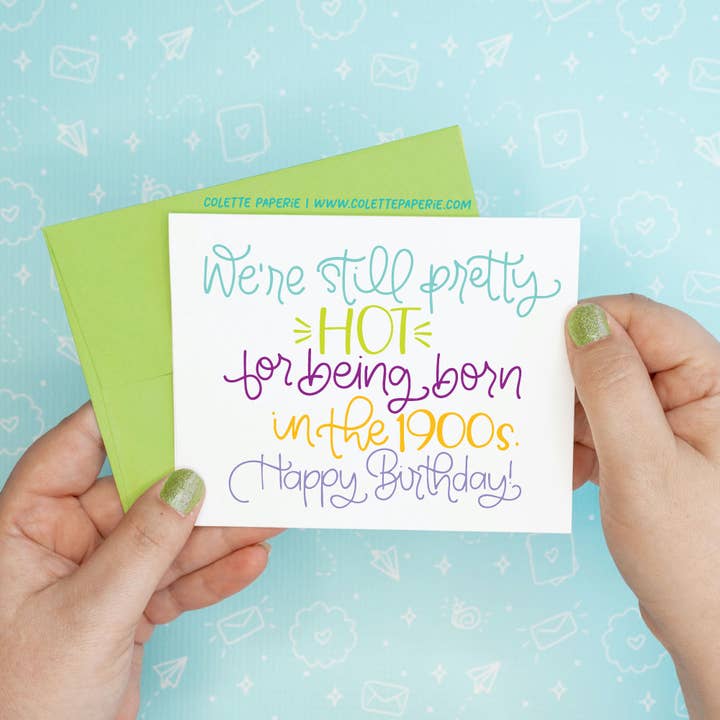 COLETTE PAPERIE | WWW.COLETTEPAPERIE.COM
We're still pretty
HOT
for being born
in the 1900s.
Happy Birthday!